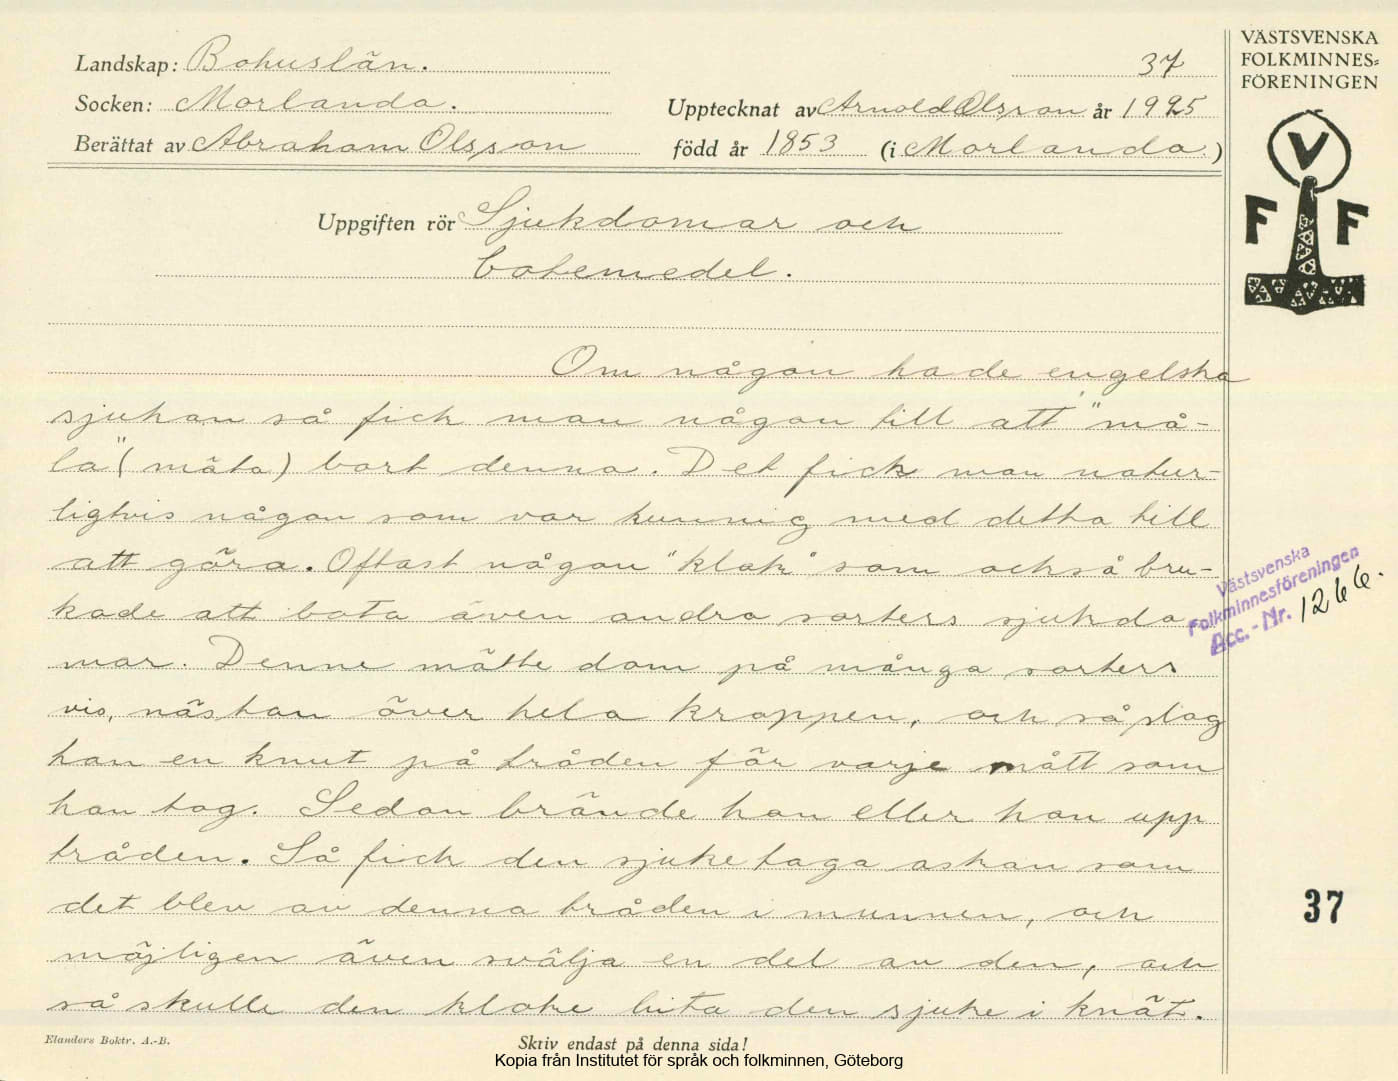 Landskap: Bohuslän.
37
Socken: Morlanda.
Upptecknat av Arnold Olsson år 1925
Berättat av Abraham Olsson
född år 1853 (i Morlanda.)
Uppgiften rör Sjukdomar och
botemedel.
Om någon hade engelska
sjukan så fick man någon till att "må-
la" (mäta) bort denna. Det fick man natur-
ligtvis någon som var kunnig med detta till
att göra. Oftast någon "klok" som också bru-
kade att bota även andra sorters sjukdo
mar. Denne mätte dom på många sorters
vis, nästan över hela kroppen, och så slog
han en knut på tråden för varje mått som
han tog. Sedan brände han eller hon upp
tråden. Så fick den sjuke taga askan som
det blev av denna tråden i munnen, och
möjligen även svälja en del av den, och
så skulle den kloke bita den sjuke i knät.
Elanders Boktr. A.-B.
Skriv endast på denna sida!
VÄSTSVENSKA
FOLKMINNES=
FÖRENINGEN
V
F F
Västsvenska
Folkminnesföreningen
Acc.-Nr. 1266.
37
Kopia från Institutet för språk och folkminnen, Göteborg